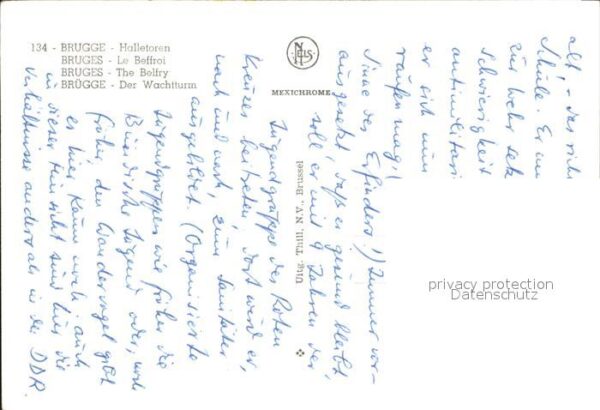 134 - BRUGGE - Halletoren
BRUGES - Le Beffroi
BRUGES - The Belfry
BRÜGGE - Der Wachtturm
NELS
MEXICHROME
Uitg. Thill, N.V., Brussel
alt, - das nich
Schule. Er
zur Wehr setz
Schwierigkeit
antimilitari
er sich nun
raufen mag,
Sinne des Erfinders!) Immer vor-
ausgesetzt, daß er gesund bleibt,
soll er mit 9 Jahren der
Jugendgruppe des Roten
Kreuzes beitreten, dort wird er,
nach und nach, zum Sanitäter
ausgebildet (Organisierte
Jugendgruppen wie früher die
Bündische Jugend oder, noch
früher, den Wandervogel gibt
es hier kaum noch: auch
in dieser Hinsicht sind hier die
Verhältnisse anders als in der DDR
privacy protection
Datenschutz